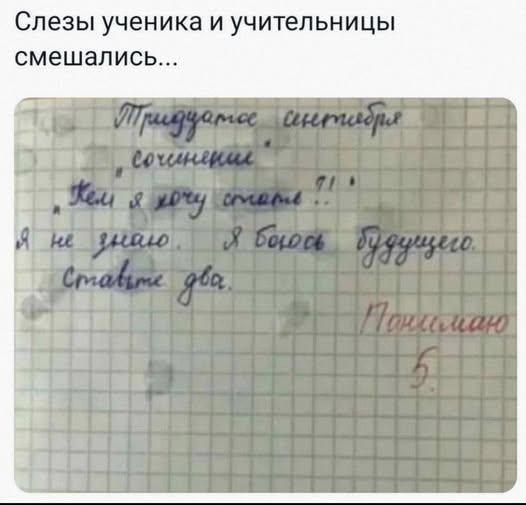 Слезы ученика и учительницы
смешались...
Тридцатое сентября
„Сочинение"
„Кем я хочу стать?!"
Я не знаю. Я боюсь будущего.
Ставьте два.
Понимаю
5.